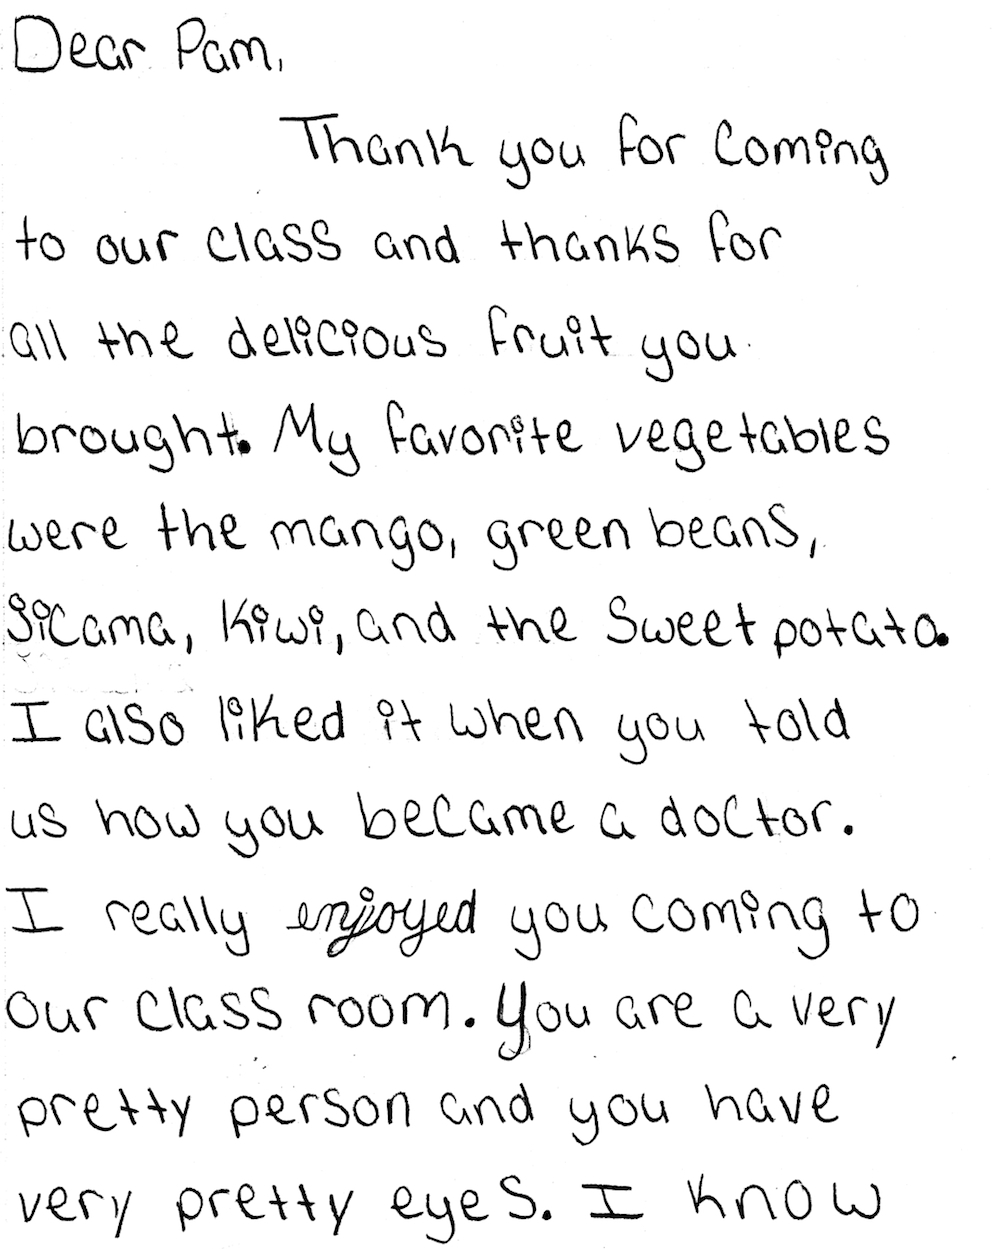 Dear Pam,
Thank you for coming
to our class and thanks for
all the delicious fruit you
brought. My favorite vegetables
were the mango, green beans,
Jicama, Kiwi, and the Sweet potato.
I also liked it when you told
us how you became a doctor.
I really enjoyed you coming to
our class room. You are a very
pretty person and you have
very pretty eyes. I know